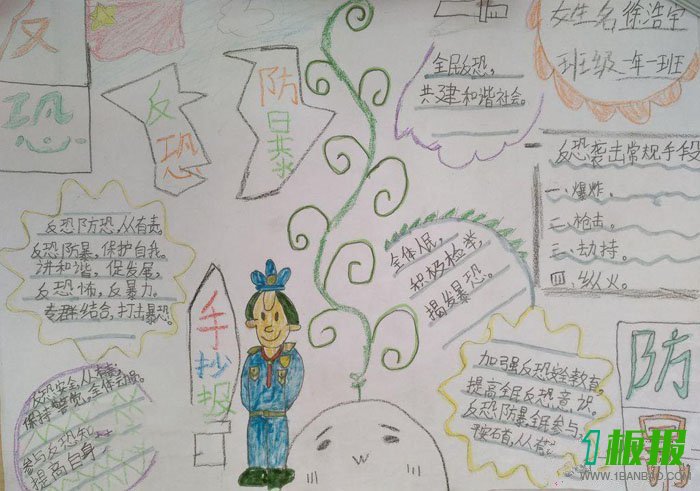 反恐
反恐
防日共求
全民反恐,
共建和谐社会。
姓名徐浩宇
班级一年一班
反恐袭击常规手段
一、爆炸。
二、枪击。
三、劫持。
四、纵火。
反恐防恐,人有责。
反恐防暴,保护自我。
讲和谐,促发展,
反恐怖,反暴力。
专群结合,打击暴恐。
手抄报
全体民,
积极检举,
揭发暴恐。
反恐安全,人有责,
保持警觉,全体动员。
参与反恐知
提高自身
加强反恐安全教育,
提高全民反恐意识。
反恐防暴全民参与
人有责。
防
1板报
WWW.1BANBAO.COM